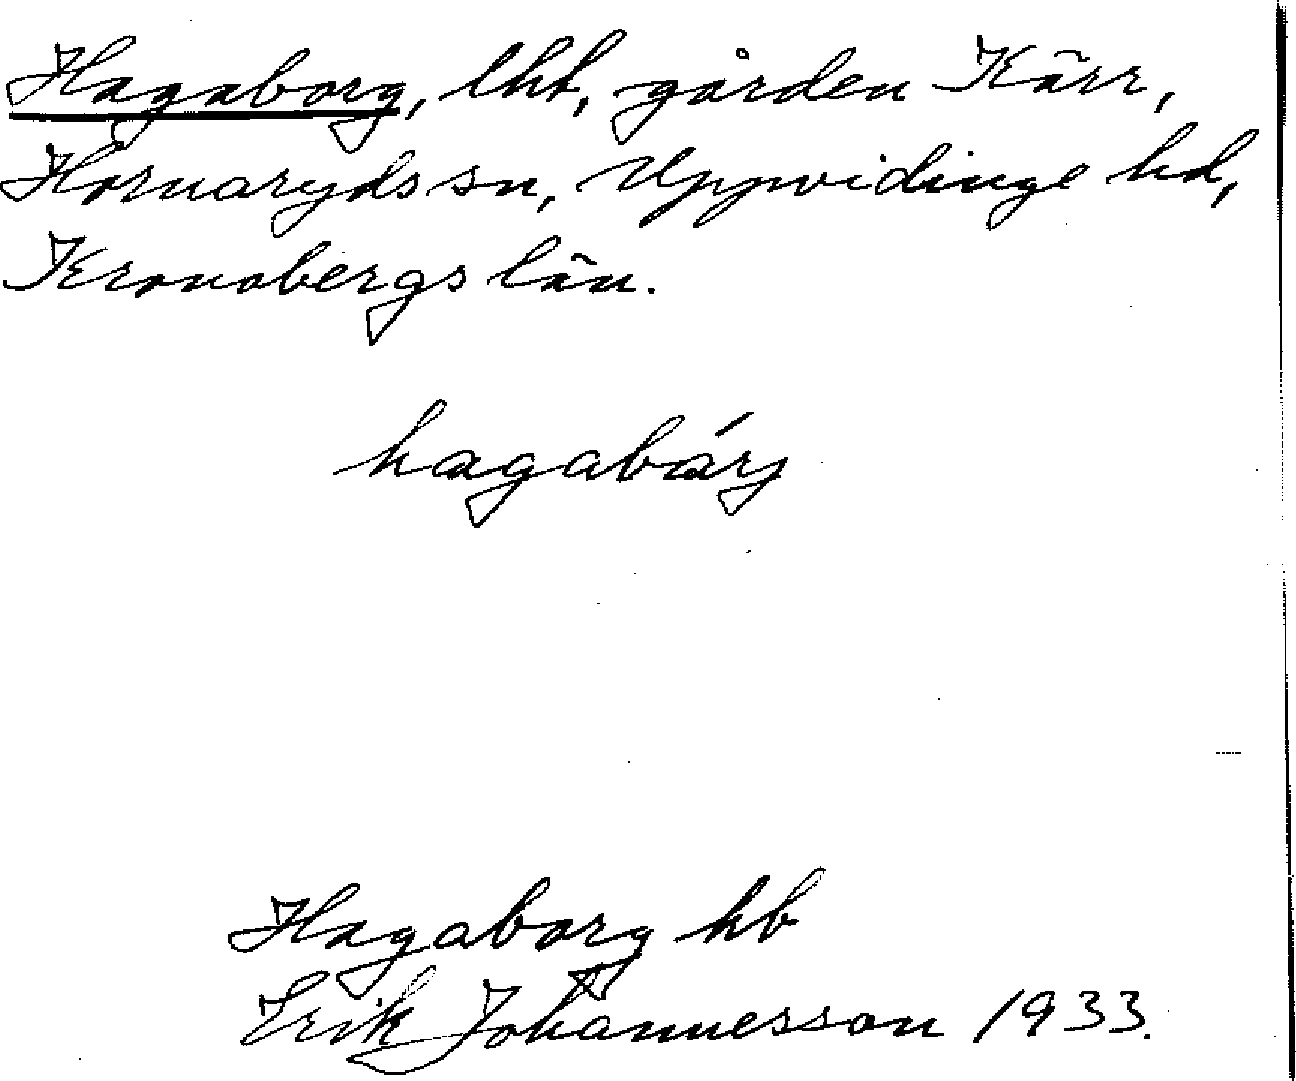 Hagaborg, lht, gården Kärr,
Hornaryds sn, Uppvidinge hd,
Kronobergs län.
hagabårj
Hagaborg hb
Erik Johannesson 1933.